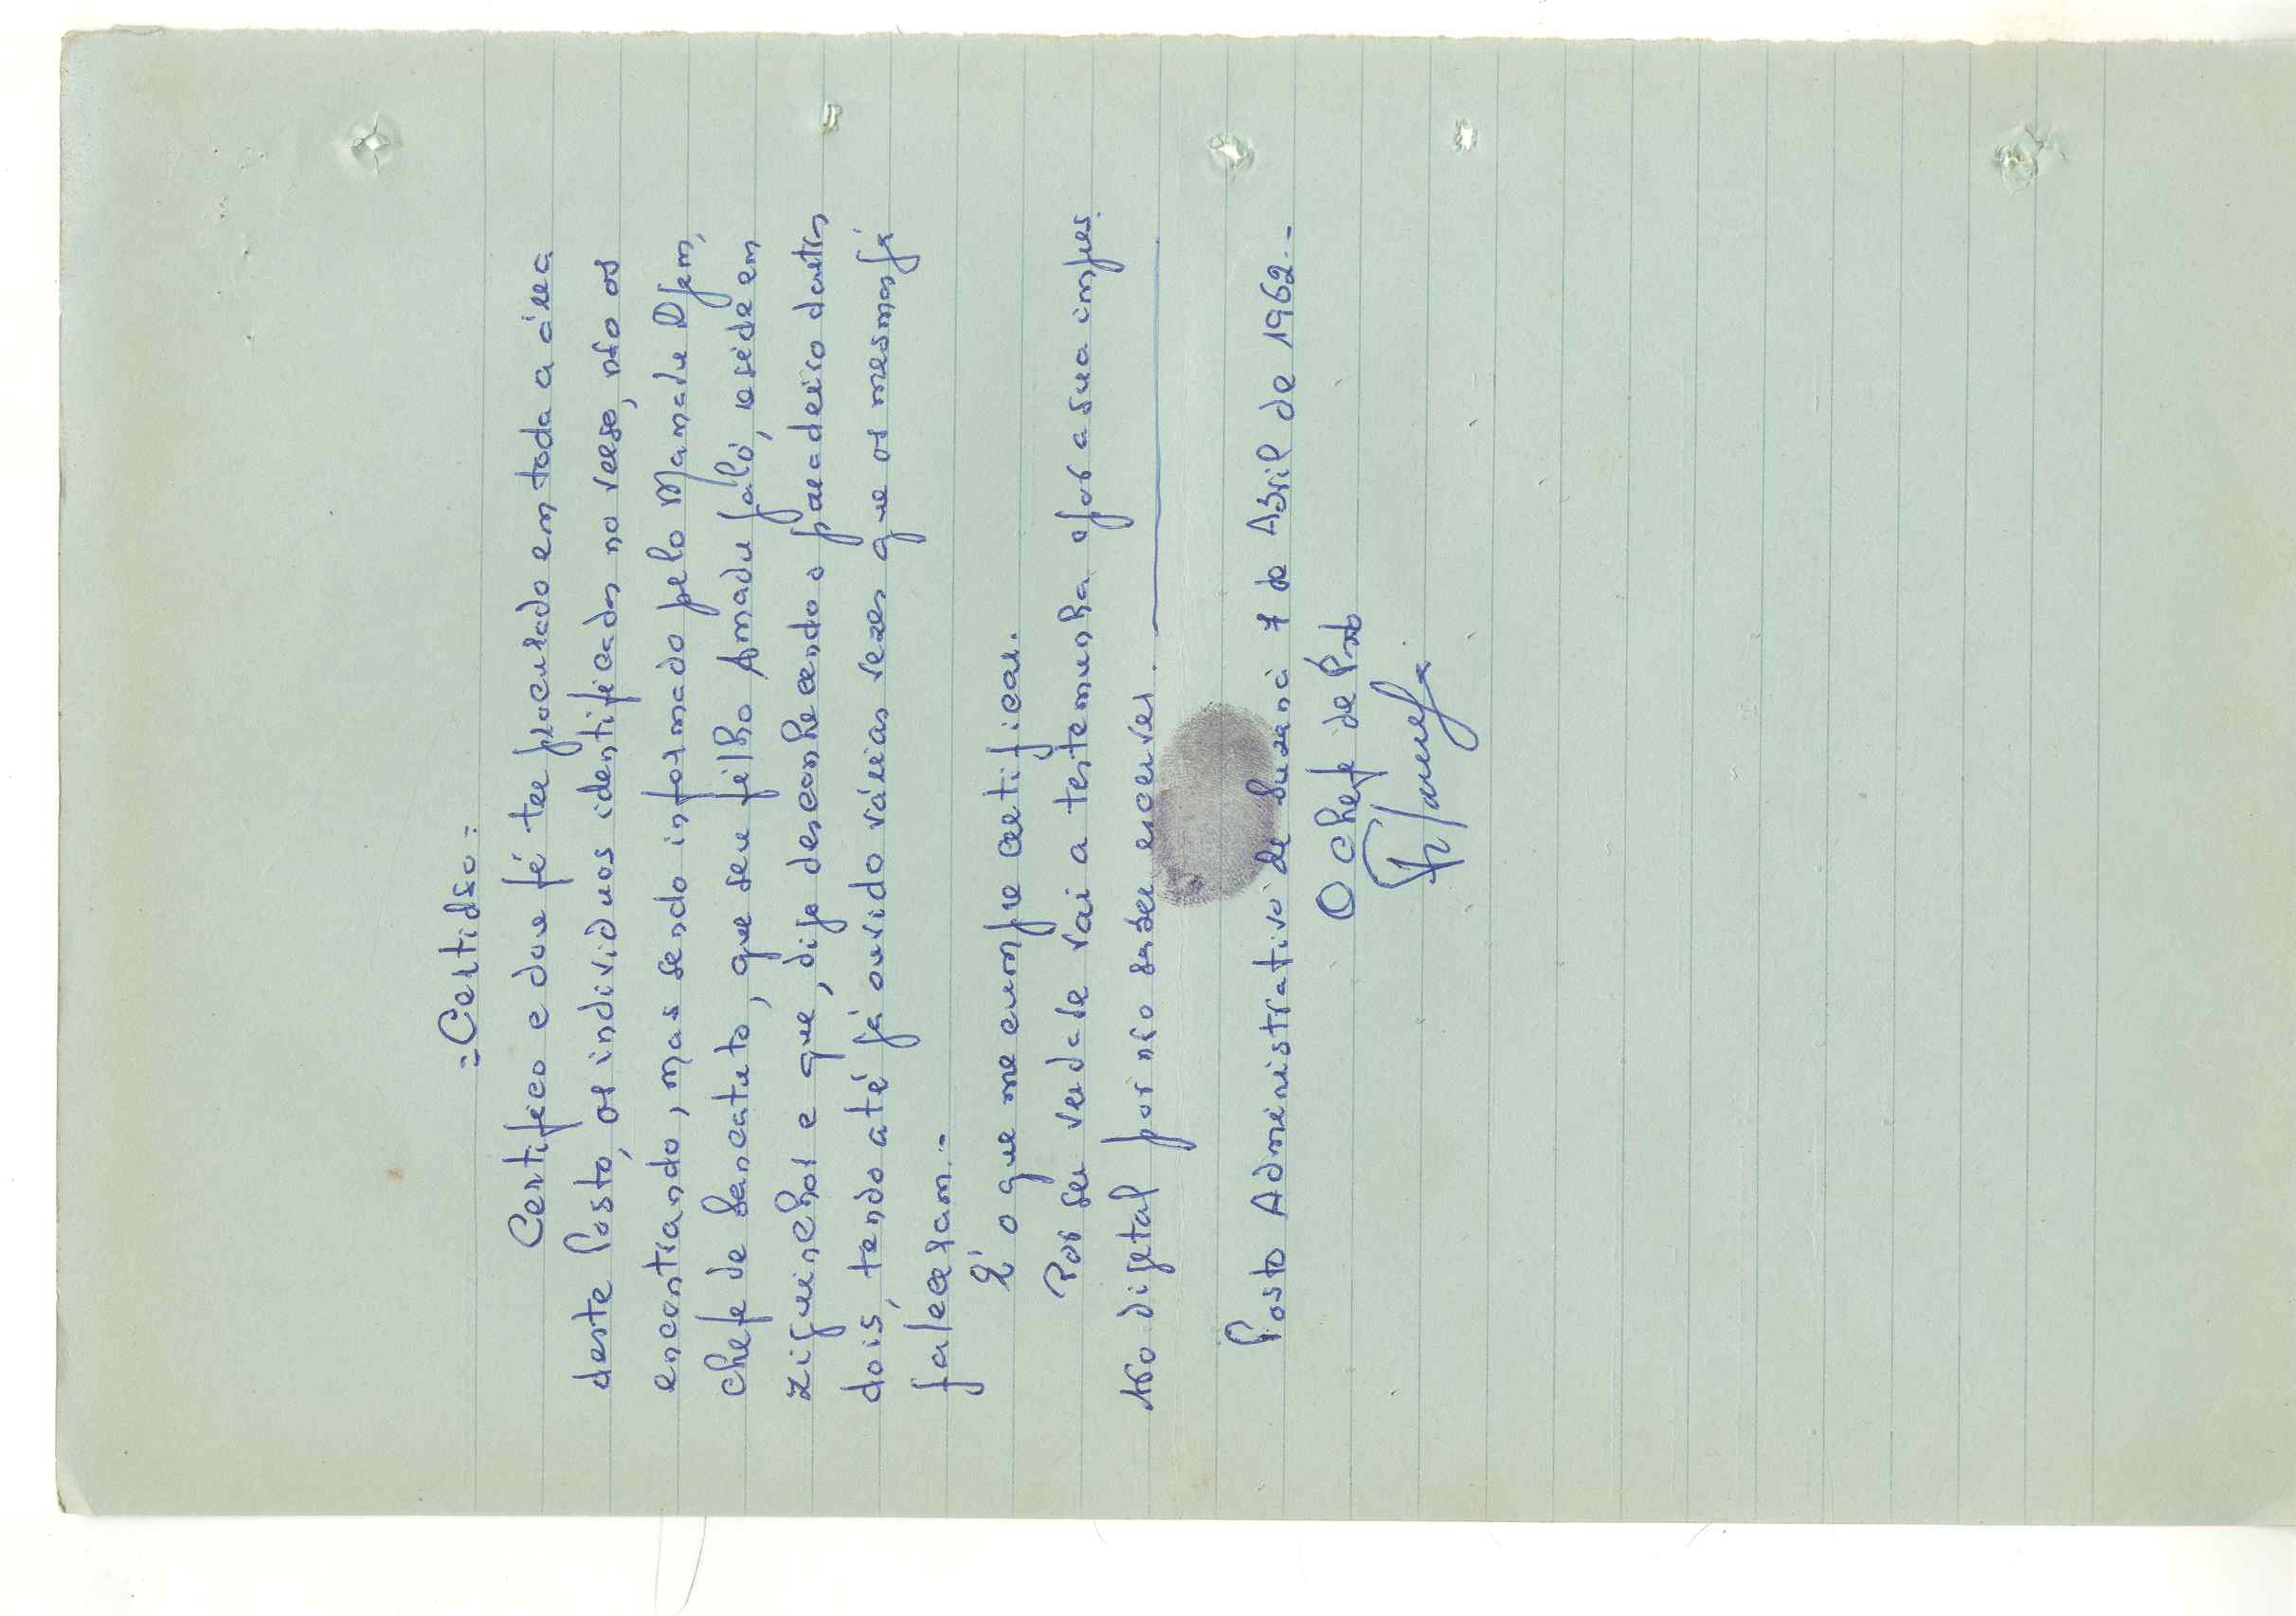 =Certidão=
Certifico e dou fé ter procurado em toda a área
deste Posto, os individuos identificados no verso, não os
encontrando, mas sendo informado pelo Mamadu Djem,
chefe de Sancatuto, que seu filho Amadu Jaló, reside em
Ziguinchor e que, digo desconhecendo o paradeiro doutros
dois, tendo até já ouvido várias vezes que os mesmos já
faleceram.-
É o que me cumpre certificar.
Por ser verdade vai a testemunha apor a sua impres
são digital por não saber escrever.
Posto Administrativo de Suzana 7 de Abril de 1962.-
O Chefe de Posto